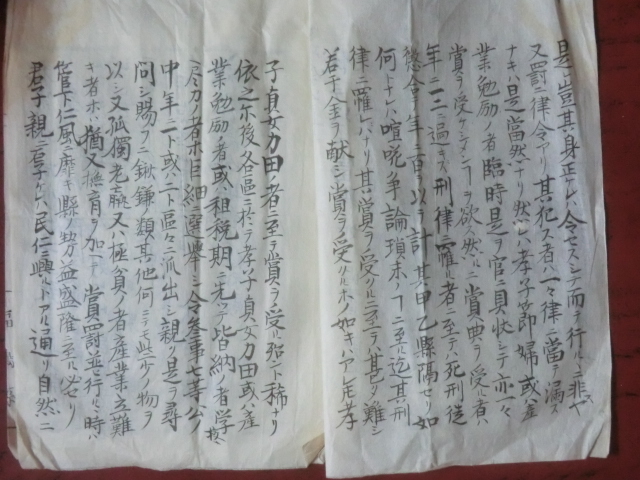 是豈其身正ケレハ令セスシテ而テ行ルヽニ非ヤ
又罰ニ律令アリ其犯ス者ハ一々律ニ当テ漏ス
ナキハ是當然ナリ然レハ孝子節婦或ハ産
業勉励ノ者臨時是ヲ官ニ具状シテ亦一々
賞ヲ受ケシメンヿヲ欲ス然ルニ賞典ヲ受ル者ハ
年ニ一二ニ過キス刑律ニ罹ル者ニ至テハ死刑徒
懲合シテ年ニ百ヲ以テ計其甲乙縣隔セリ如
何トナレハ喧呪争論瑣末ノヿニ至ル迄其刑
律ニ罹レハナリ其賞ヲ受クルニ至テハ甚タ難シ
若干金ヲ献シ賞ヲ受クルホノ如キハアレ𪜈孝
子貞女力田ノ者ニ至テ賞ヲ受ル殆ント稀ナリ
依之尓後各區ニ於テ孝子貞女力田或ハ産
業勉励ノ者或ハ租税期ニ先ツテ皆納ノ者学校ヘ
尽力ノ者ホ巨細ニ選舉シ令参事七等公ノ
中年ニ一ト或ハ二ト區々ニ派出シ親ク是ヲ尋
問シ賜フニ鍬鎌ノ類其他何ニテモ些少ノ物ヲ
以シ又孤獨老羸又ハ極貧ノ者産業立難
キ者ホハ猶又撫育ヲ加ヘ賞罰並行ルヽ時ハ
管下仁風ニ靡キ縣勢益盛隆ニ至ル必セリ
君子親ニ厚ケレハ民仁ニ興ルトアル通リ自然ニ